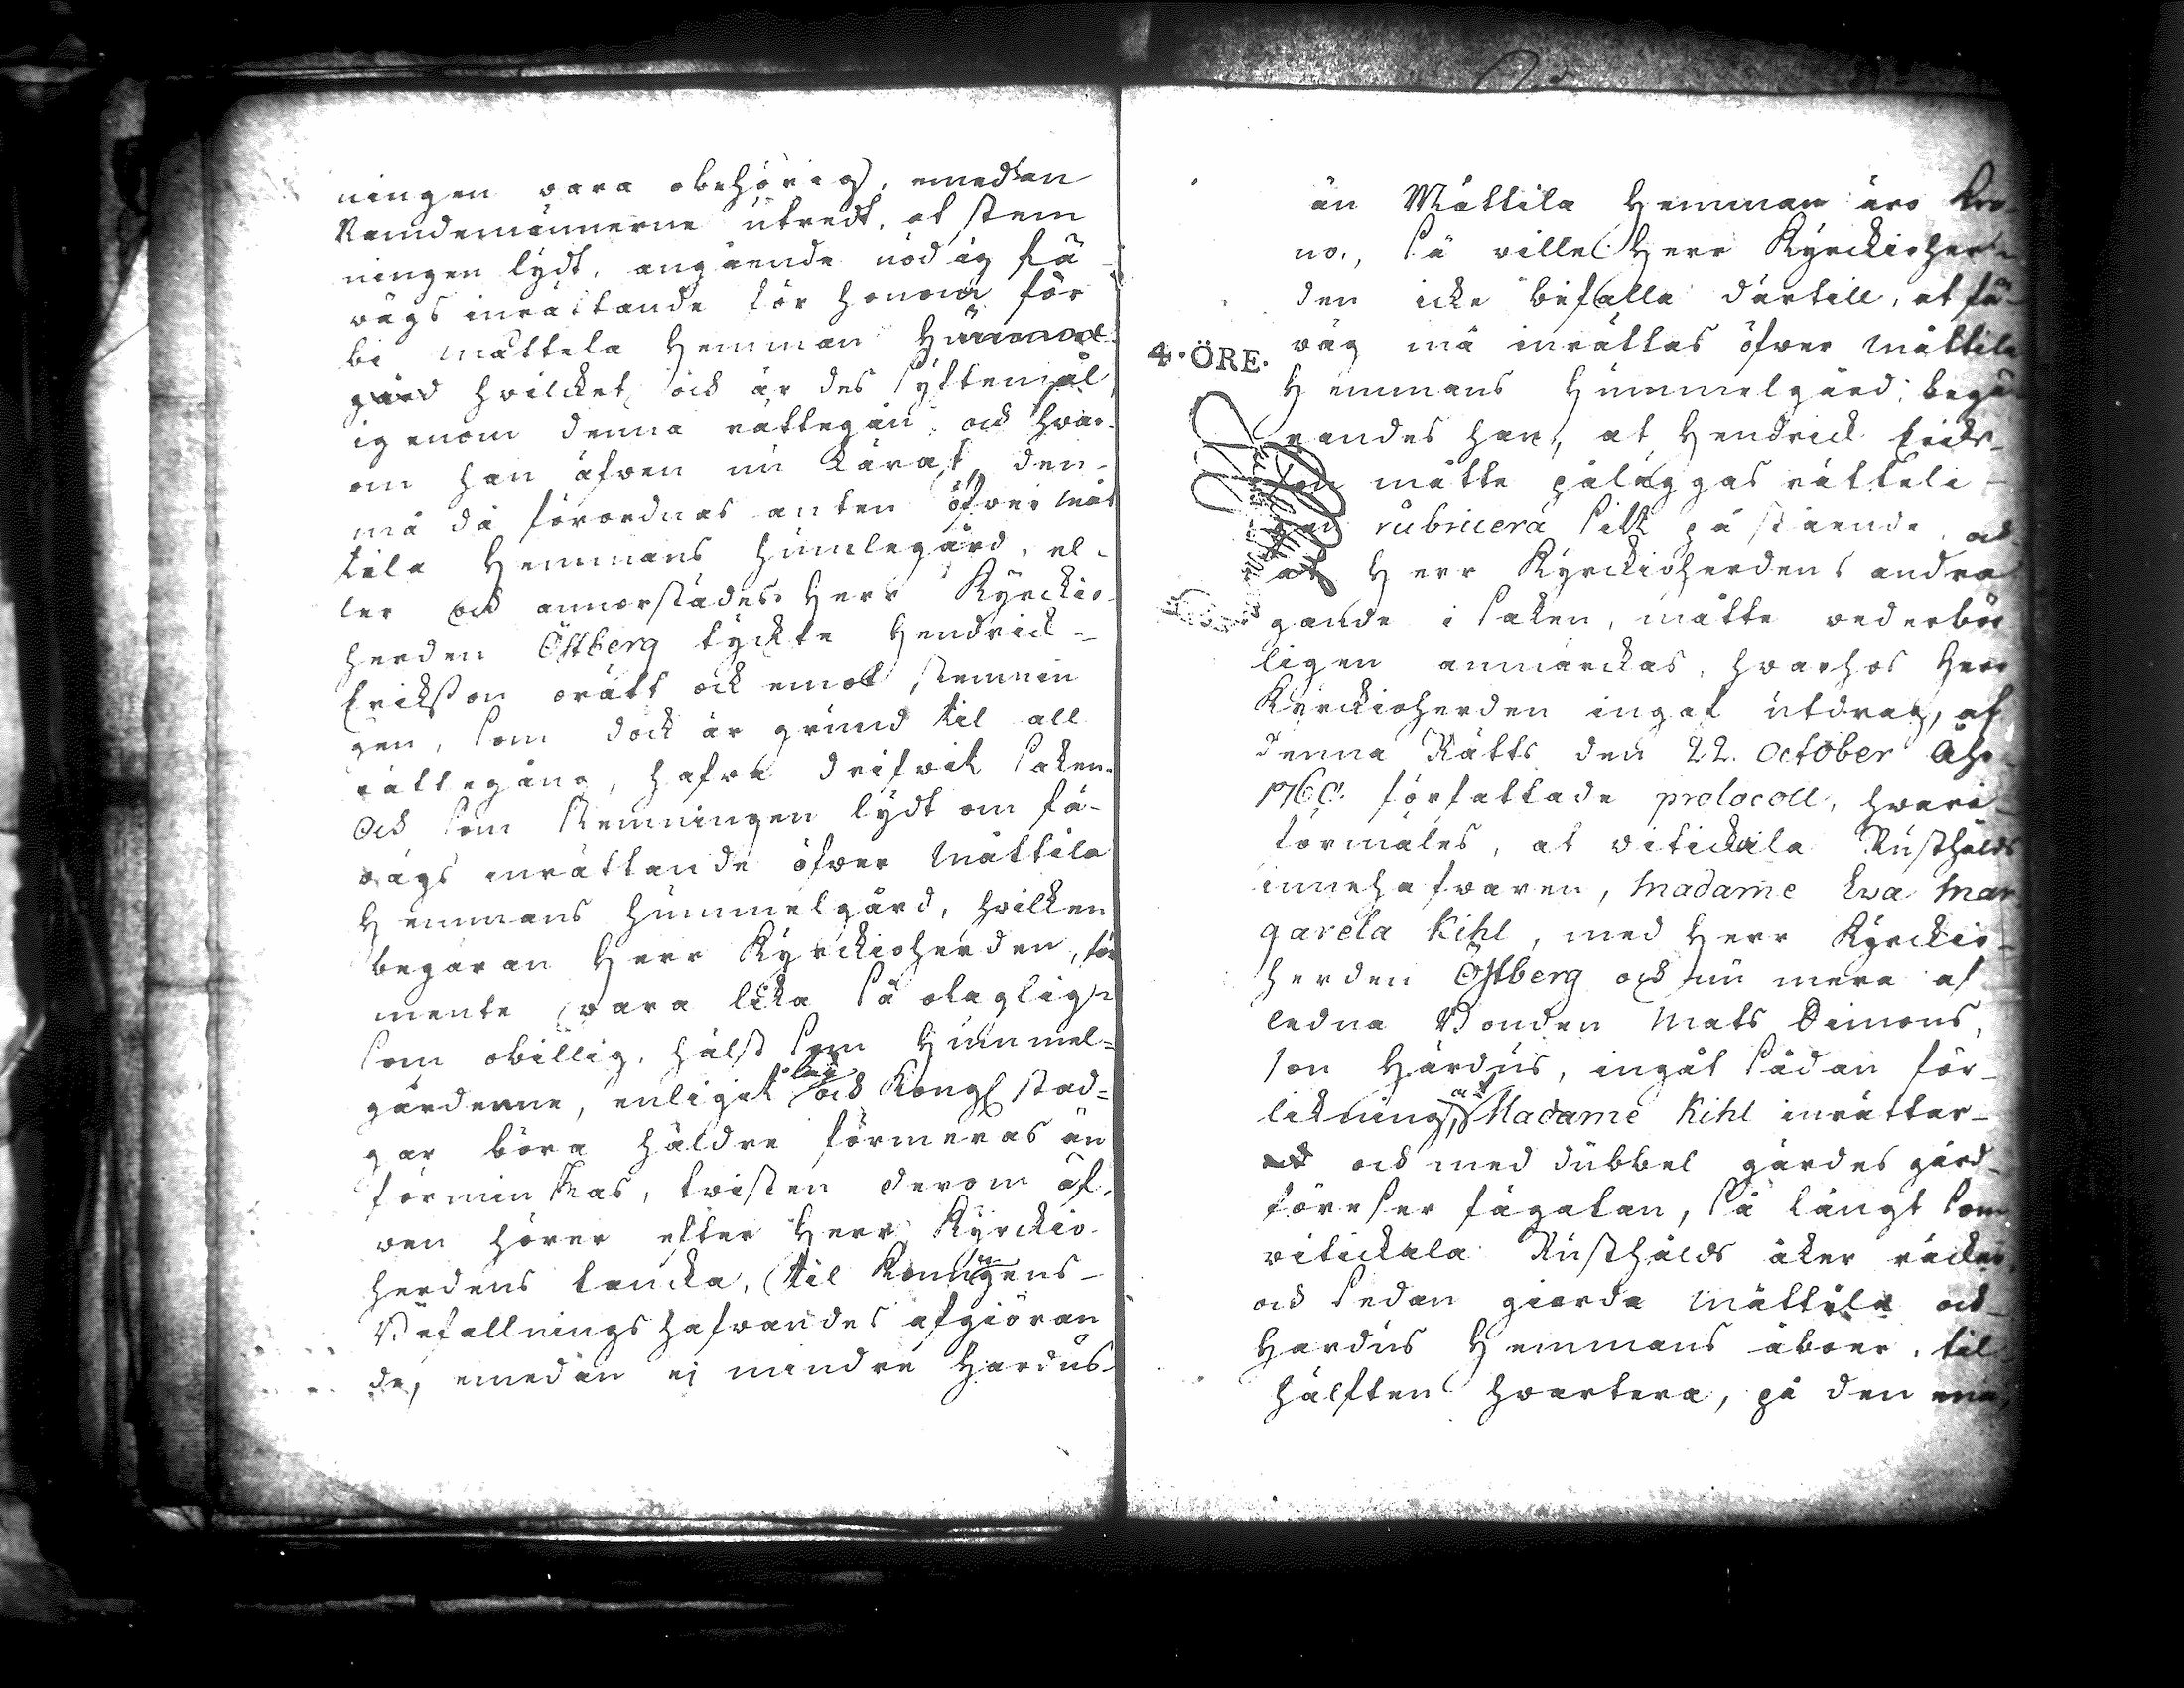 ningen vara obehörig, emedan
Nämdemännerne utredt, at stem
ningen lydt, angående nödig fä-
vägs inrättande för honom för
bi Mattela Hemman Hummel-
gård hvilcket ock är des syftemål
igenom denna rättegån, ock hvar-
om han äfven nu kärat, den-
må då förordnas anten öfver Mät
tila Hemmans humlegård, el-
ler ock annorstädes. Herr Kyrckio-
herden Östberg tyckte Hendrick
Erickson orätt ock emot stemnin
gen, som dock är grund til all
rättegång, hafva drifvit saken.
Ock som stemningen lydt om fä-
vägs inrättande öfver Mättila
Hemmans hummelgård, hvilken
begäran Herr Kyrckioherden, för
mente vara lika så olaglig
som obillig, hälst som Hummel-
gårderne, enligit lag ock Kongl stad-
gar böra häldre förmeras än
förminskas, tvisten derom äf-
ven hörer efter Herr Kyrckio
herdens tancka, til Konungens
Befallningshafvandes afgiöran
de, emedan ej mindre Hardus-
än Mättila Hemman äro Kro-
no, så ville Herr Kyrckioher-
den icke befalla därtill, at fä-
väg må inrättas öfver Mättila
4. ÖRE.
Hemmans Hummelgård; begä-
randes han, at Hendrick Erick-
son måtte påläggas rätteli-
gen rubricera sitt påstående, ock
at Herr Kyrckioherdens andra
gande i saken, måtte vederbör
ligen anmärckas, hvarhos Herr
Kyrckioherden ingaf utdrag, af
denna Rätts den 22. October Åhr
1760. författade protocoll, hvari
förmäles, at vitickala Rusthålds
innehafvaren, Madame Eva Mar
gareta Kihl, med Herr Kyrckio-
herden Östberg ock nu mera af
ledna Bonden Mats Simons,
son Hardus, ingåt sådan för-
likning, at Madame Kihl inrättar-
ock med dubbel gärdes gård-
föreser fägatan, så långt som
vitickala Rusthålds åker räcker,
ock sedan giorda Mättila ock
Hardus Hemmans åboer, til
hälften hvartera, på den ena,